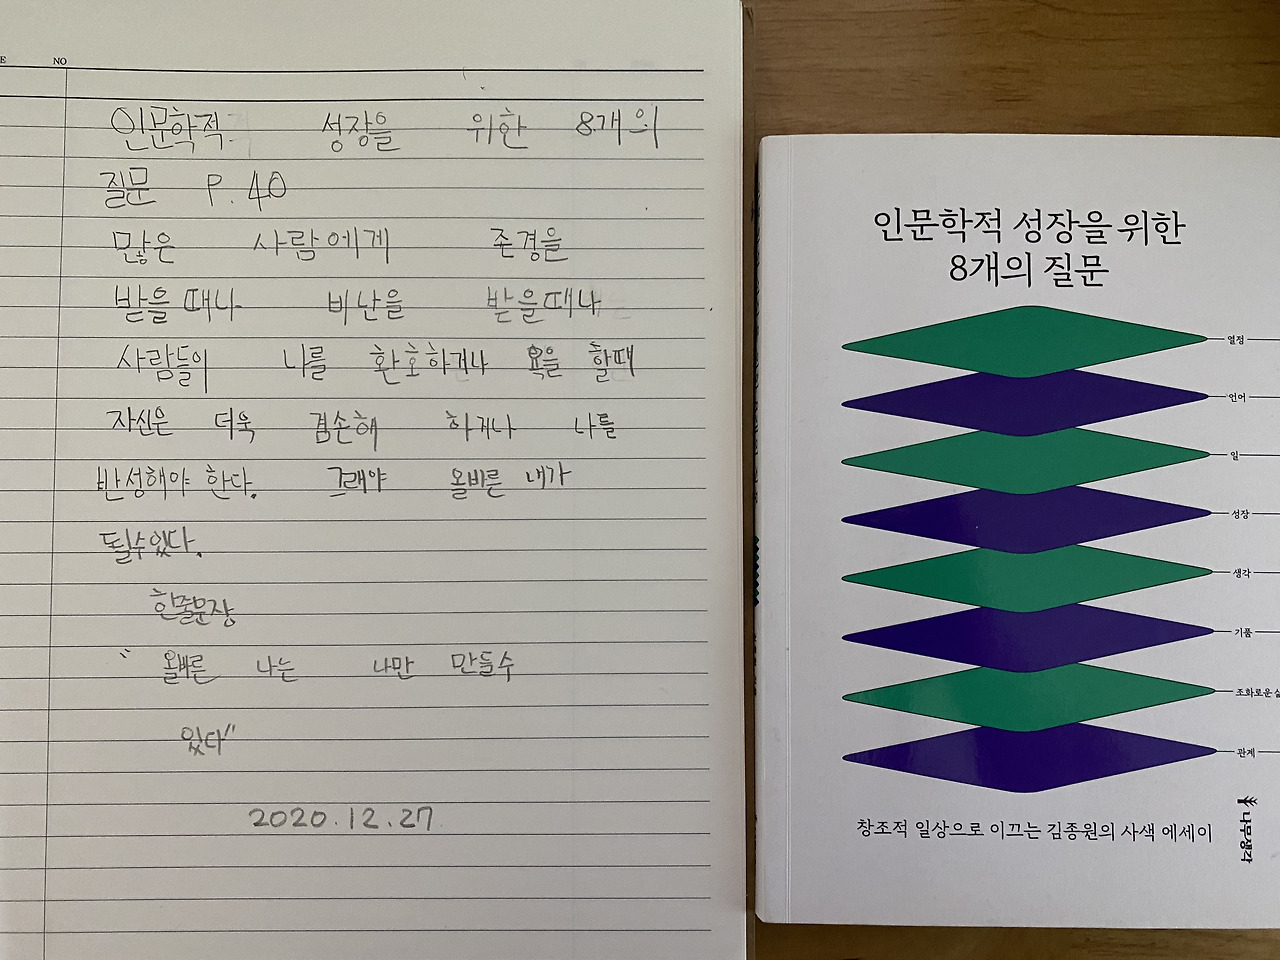 E
NO
인문학적 성장을 위한 8개의
질문 P. 40
많은 사람에게 존경을
받을때나 비난을 받을때나
사람들이 나를 환호하거나 욕을 할때
자신은 더욱 겸손해 하거나 나를
반성해야 한다. 그래야 올바른 내가
될수있다.
한줄문장
" 올바른 나는 나만 만들수
있다"
2020.12.27
인문학적 성장을 위한
8개의 질문
열정
언어
일
성장
생각
기품
조화로운
관계
창조적 일상으로 이끄는 김종원의 사색 에세이
나무생각